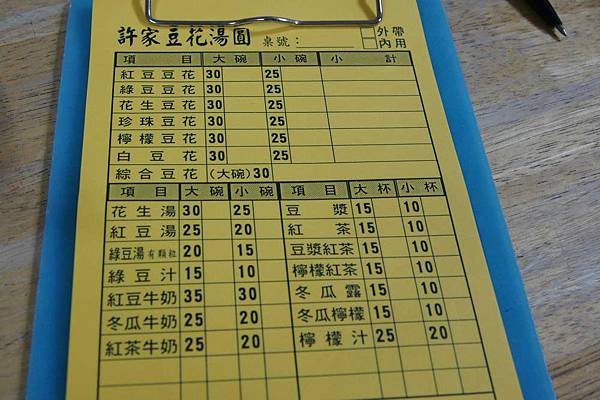 許家豆花湯圓 桌號： 外帶 內用
項目 大碗 小碗 小計
紅豆豆花 30 25
綠豆豆花 30 25
花生豆花 30 25
珍珠豆花 30 25
檸檬豆花 30 25
白豆花 30 25
綜合豆花 (大碗) 30
項目 大碗 小碗 項目 大杯 小杯
花生湯 30 25 豆漿 15 10
紅豆湯 25 20 紅茶 15 10
綠豆湯有顆粒 20 15 豆漿紅茶 15 10
綠豆汁 15 10 檸檬紅茶 15 10
紅豆牛奶 35 30 冬瓜露 15 10
冬瓜牛奶 25 20 冬瓜檸檬 15 10
紅茶牛奶 25 20 檸檬汁 25 20